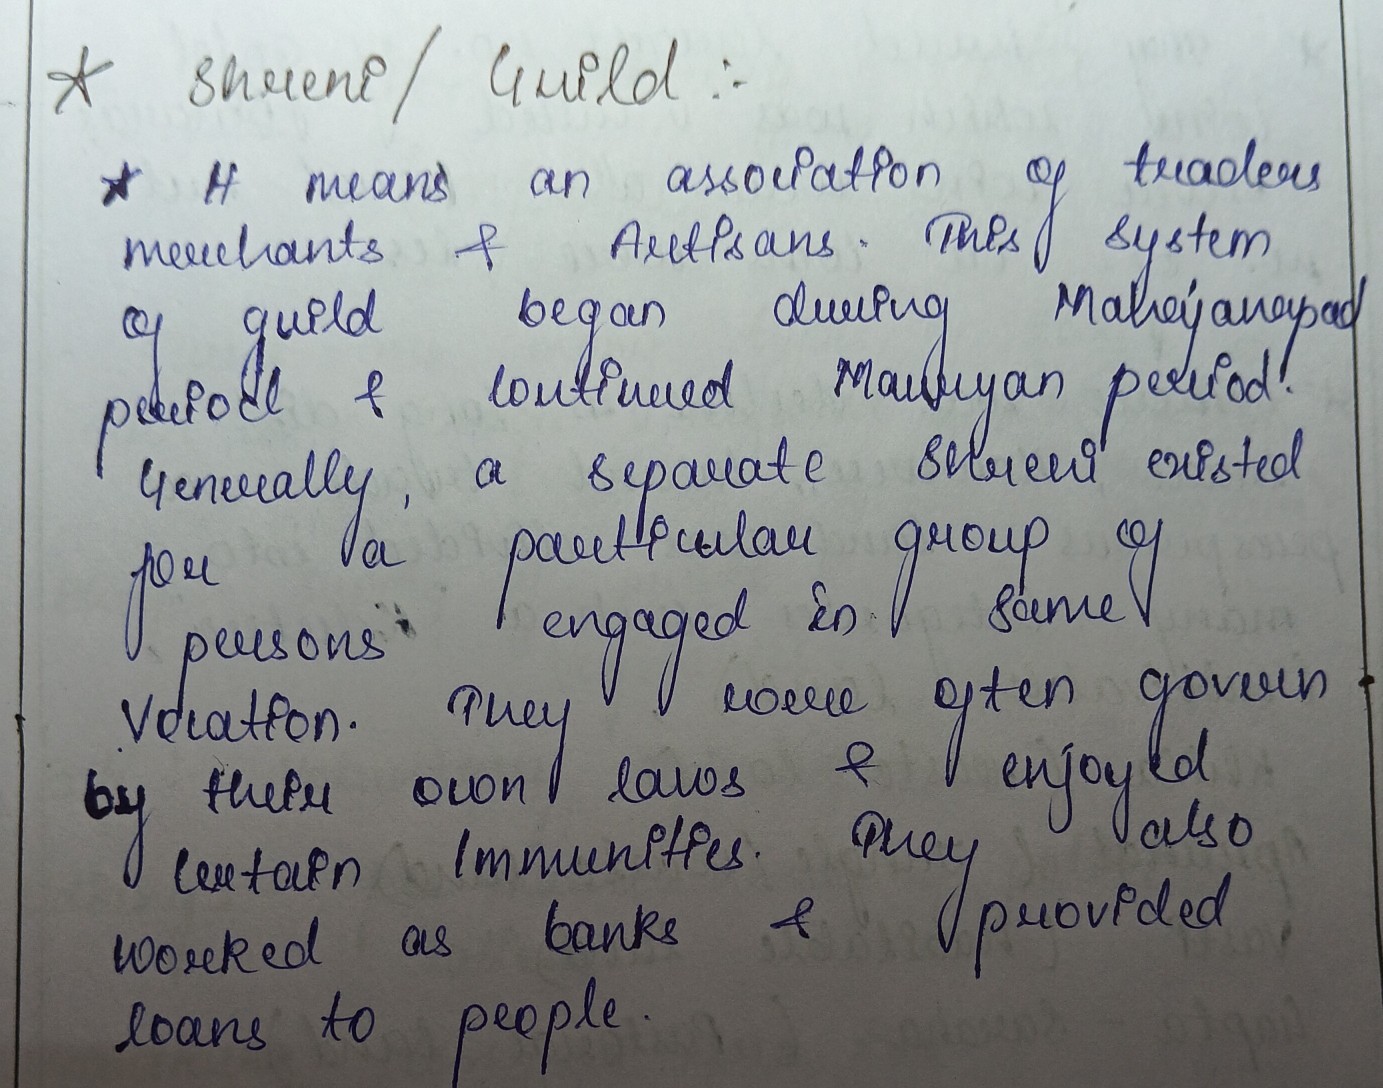 * Shreni/ Guild :-
* It means an association of traders
merchants & Artisans. This system
of guild began during Mahajanapad
period & continued Mauryan period.
Generally, a separate Shreni existed
for a particular group of
persons engaged in same
Vocation. They were often govern
by their own laws & enjoyed
certain Immunities. They also
worked as banks & provided
loans to people.